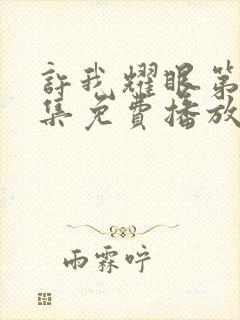 許我耀眼第
集免費播放
雨霖咛